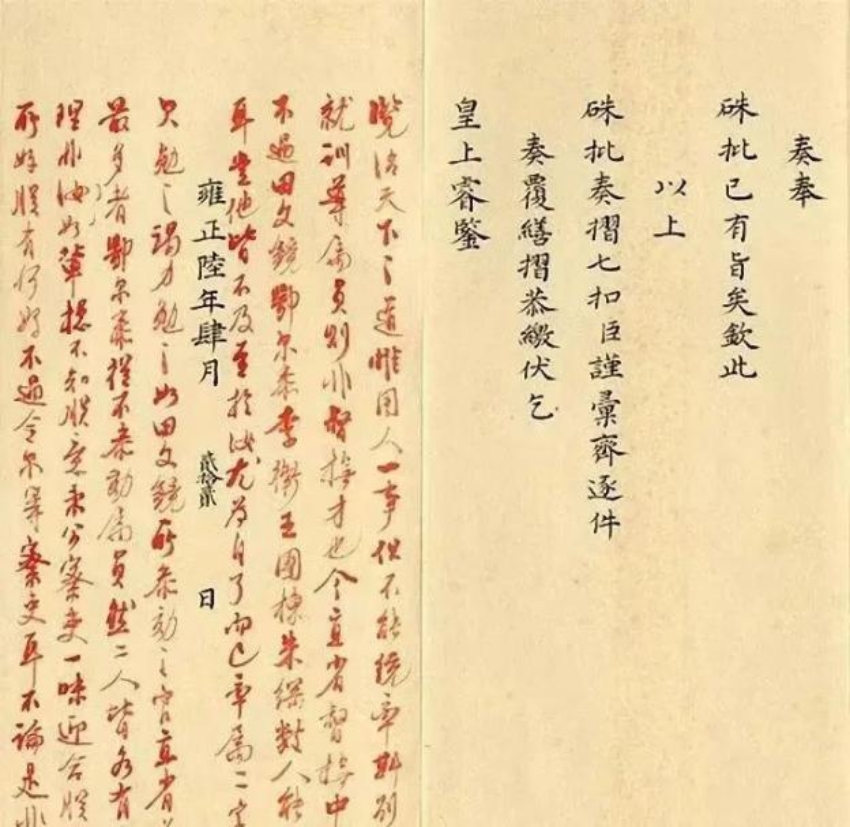 奏奉
硃批已有旨矣欽此
以上
硃批奏摺七扣臣謹彙齊逐件
奏覆繕摺恭繳伏乞
皇上睿鑒
覽治天下之道惟用人一事但不能統率
就訓導屬員則非督撫才也今直省督撫中
不過田文鏡鄂尔泰李衛王國棟朱綱數人能
耳其他皆不及至於汝尤為自了而已率屬二字
雍正陸年肆月貳拾貳日
欠勉之竭力勉之如田文鏡所參劾之官直省
最多者鄂尔泰從不參劾屬員然二人皆各有
理非汝如輩總不知朕意秉公察吏一味迎合朕
所好朕有何好不過令尔等察吏耳不論是非